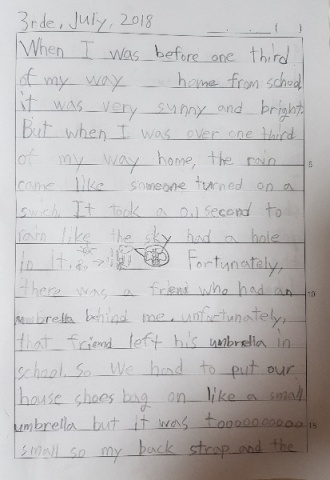 3rde, July, 2018
( )
When I was before one third
of my way home from school
it was very sunny and bright.
But when I was over one third
of my way home, the rain
5
came like someone turned on a
swich. It took a 0.1 second to
rain like the sky had a hole
in it. Fortunately,
there was a friend who had an
10
umbrella behind me. unfortunately,
that friend left his umbrella in
school. So we had to put our
house shoes bag on like a small
umbrella but it was toooooooooo
15
small so my back strap and the